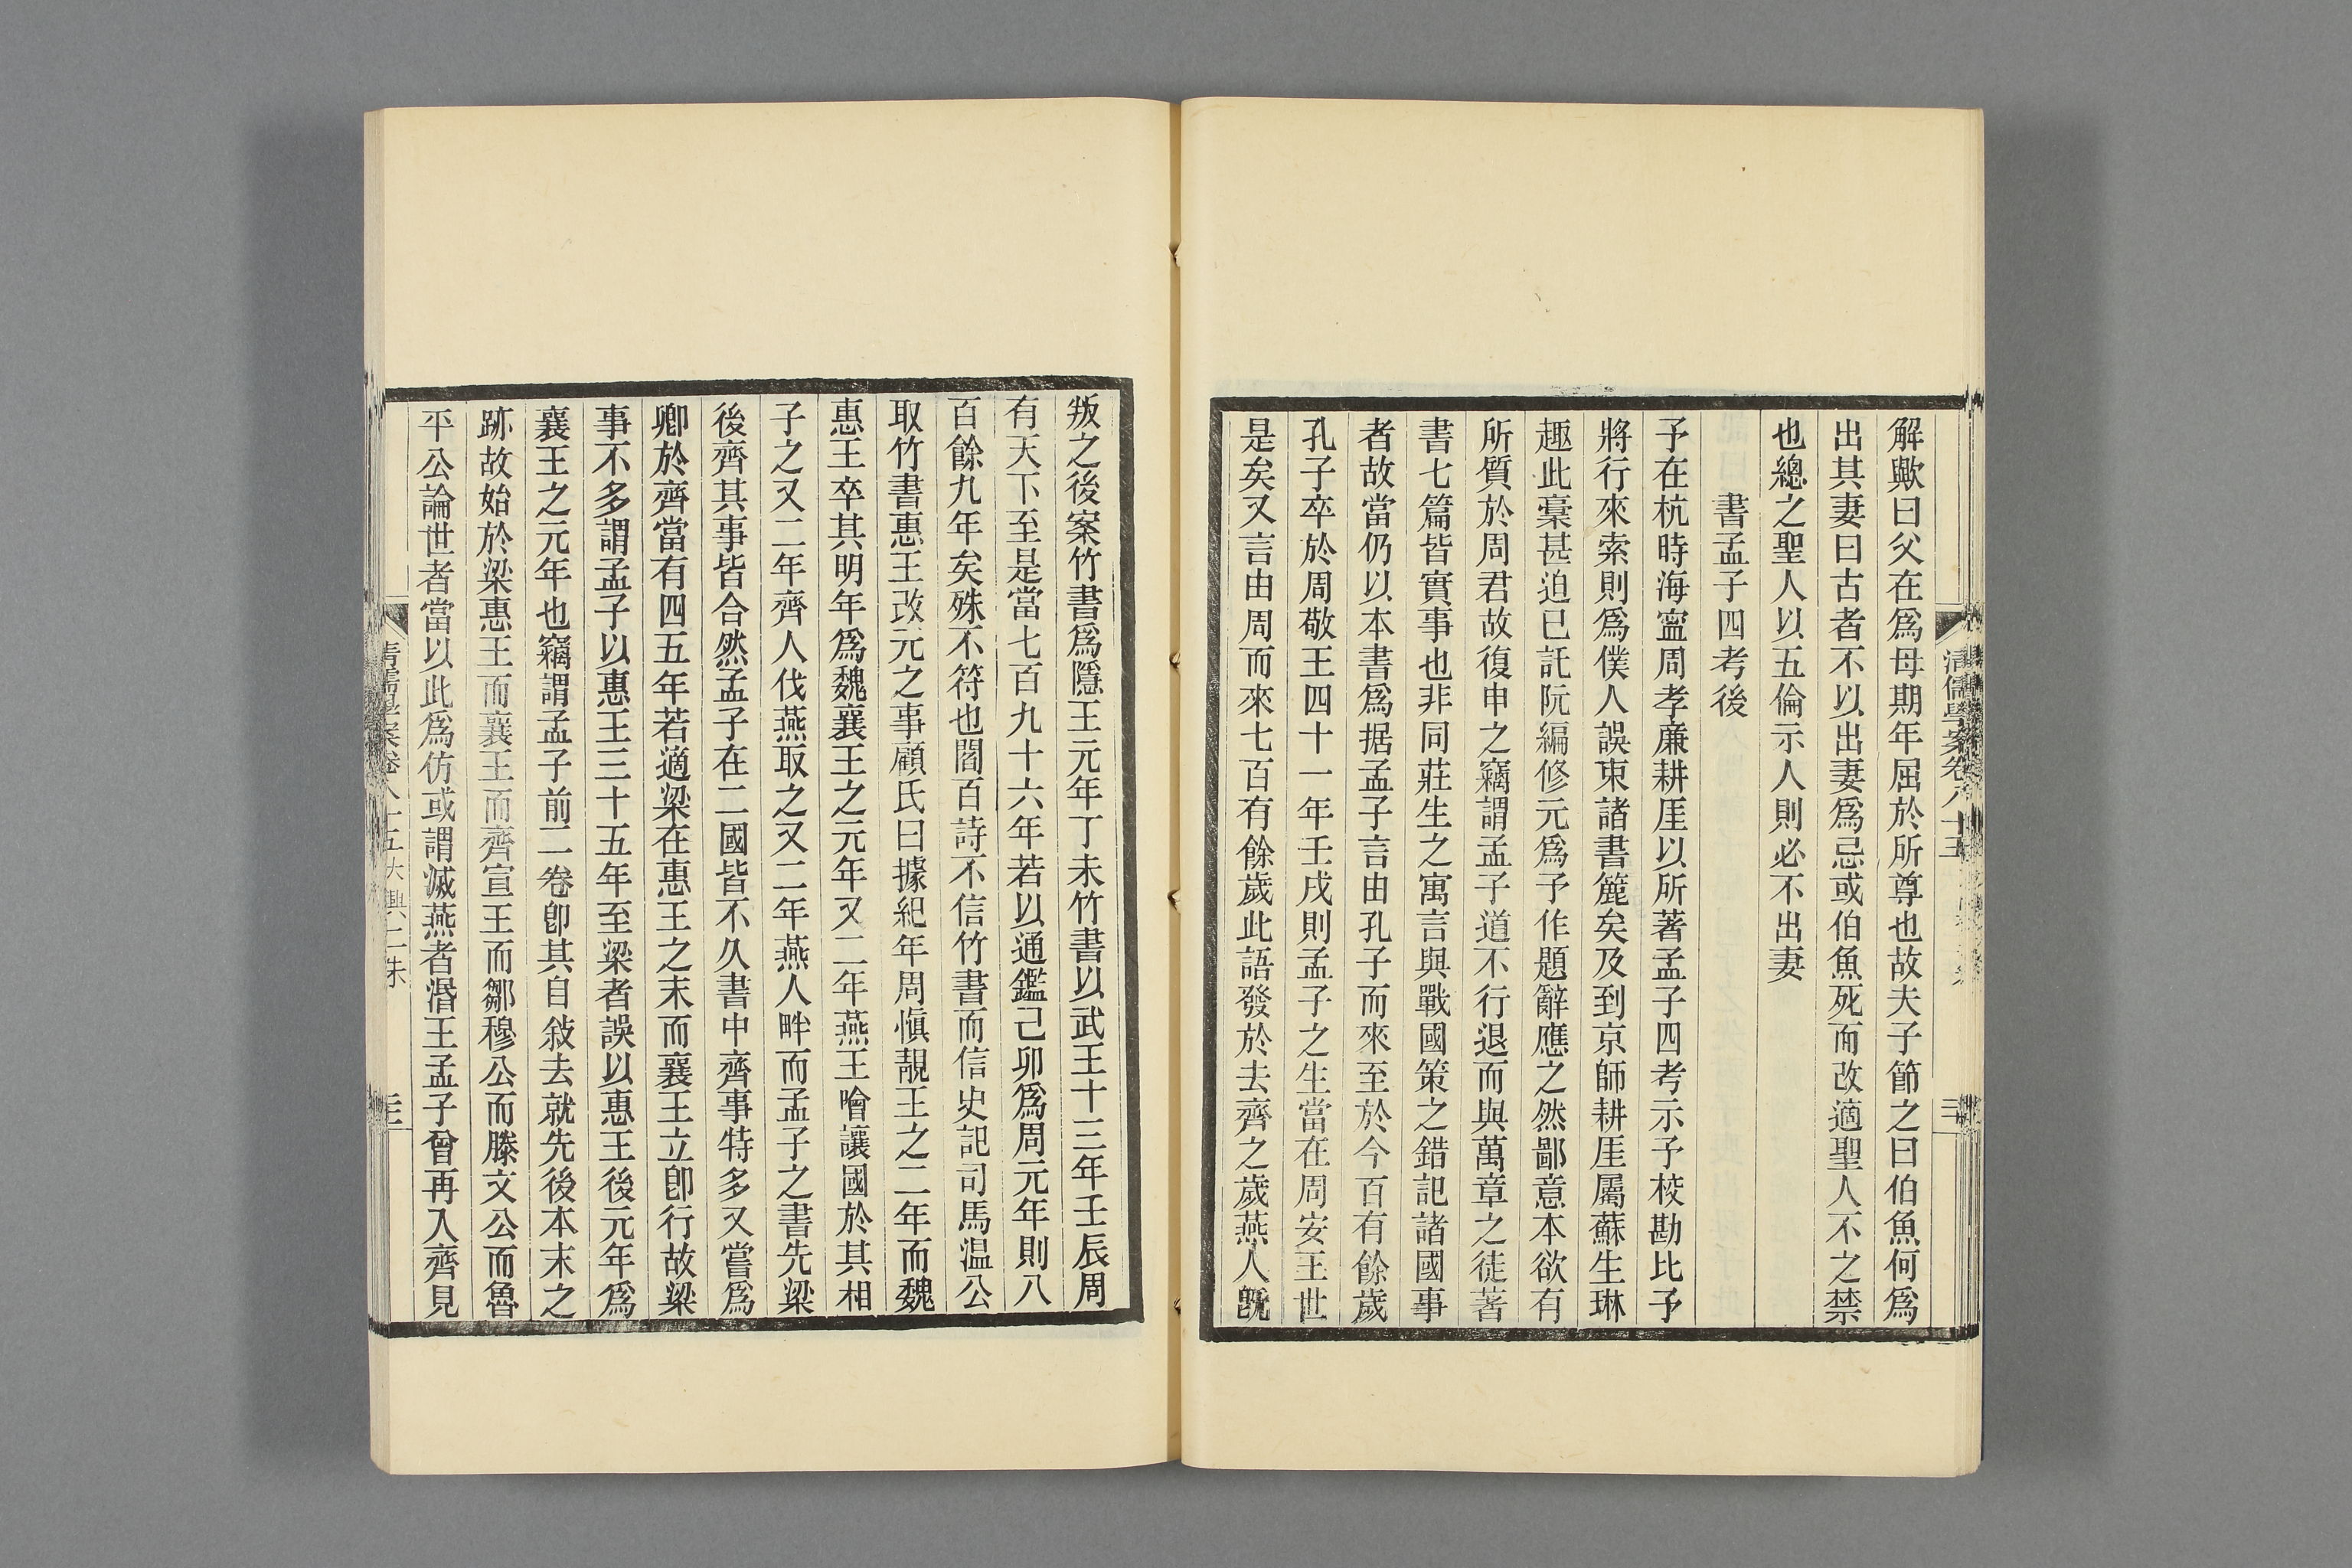 解歟曰父在爲母期年屈於所尊也故夫子節之曰伯魚何爲
出其妻曰古者不以出妻爲忌或伯魚死而改適聖人不之禁
也總之聖人以五倫示人則必不出妻
書孟子四考後
予在杭時海寧周孝廉耕厓以所著孟子四考示予校勘比予
將行來索則爲僕人誤束諸書簏矣及到京師耕厓屬蘇生琳
趣此稾甚迫已託阮編修元爲予作題辭應之然鄙意本欲有
所質於周君故復申之竊謂孟子道不行退而與萬章之徒著
書七篇皆實事也非同莊生之寓言與戰國策之錯記諸國事
者故當仍以本書爲据孟子言由孔子而來至於今百有餘歲
孔子卒於周敬王四十一年壬戌則孟子之生當在周安王世
是矣又言由周而來七百有餘歲此語發於去齊之歲燕人旣
叛之後案竹書爲隱王元年丁未竹書以武王十三年壬辰周
有天下至是當七百九十六年若以通鑑己卯爲周元年則八
百餘九年矣殊不符也閻百詩不信竹書而信史記司馬温公
取竹書惠王改元之事顧氏曰據紀年周愼靚王之二年而魏
惠王卒其明年爲魏襄王之元年又二年燕王噲讓國於其相
子之又二年齊人伐燕取之又二年燕人畔而孟子之書先梁
後齊其事皆合然孟子在二國皆不久書中齊事特多又嘗爲
卿於齊當有四五年若適梁在惠王之末而襄王立卽行故梁
事不多謂孟子以惠王三十五年至梁者誤以惠王後元年爲
襄王之元年也竊謂孟子前二卷卽其自敍去就先後本末之
跡故始於梁惠王而襄王而齊宣王而鄒穆公而滕文公而魯
平公論世者當以此爲仿或謂滅燕者湣王孟子曾再入齊見
清儒學案卷八十五大興二朱